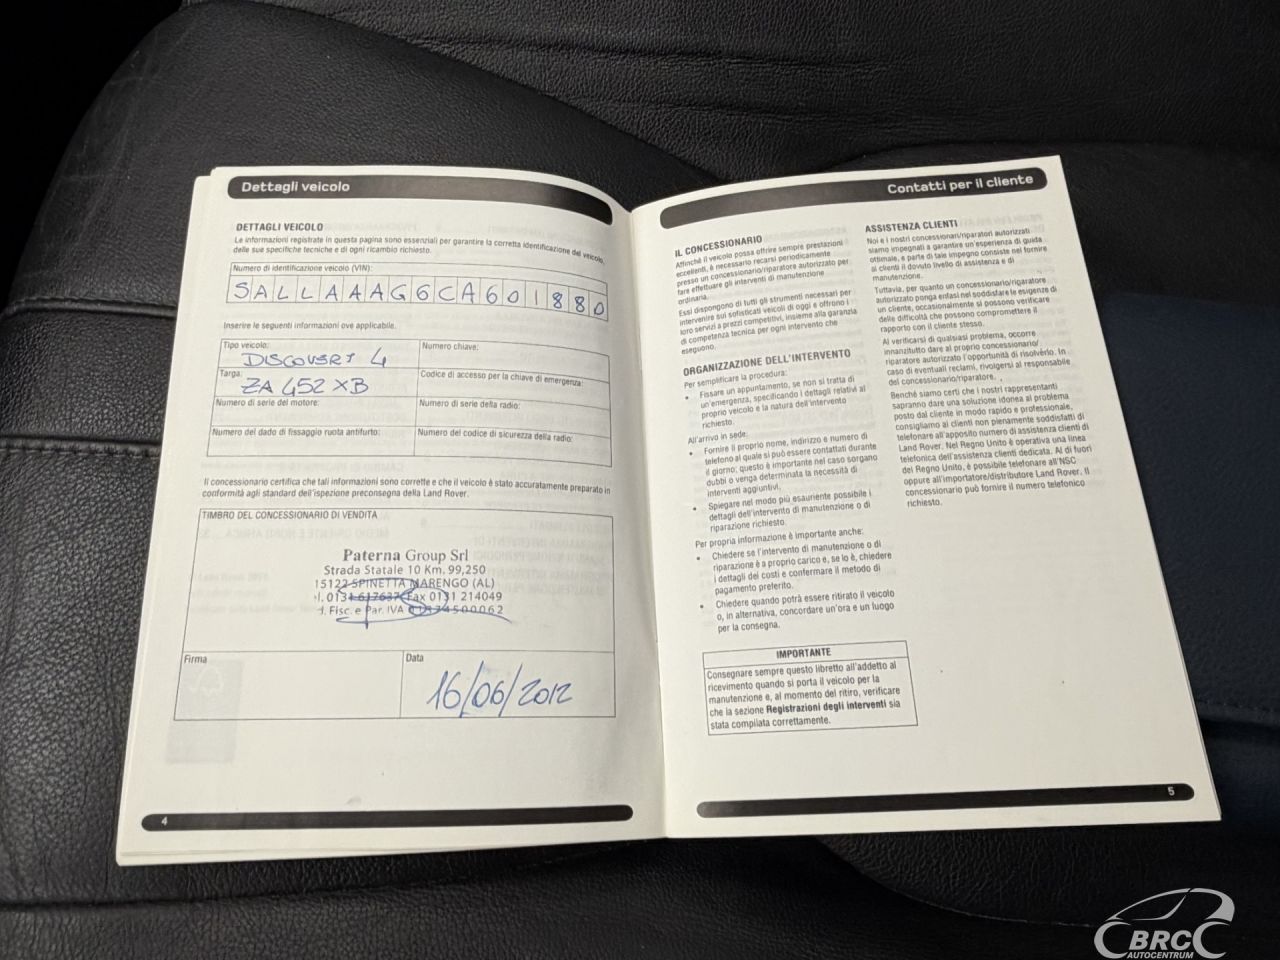 Dettagli veicolo
DETTAGLI VEICOLO
Le informazioni registrate in questa pagina sono essenziali per garantire la corretta identificazione del veicolo,
delle sue specifiche tecniche e di ogni ricambio richiesto.
Numero di identificazione veicolo (VIN):
SALLAAAG6CA601880
Inserire le seguenti informazioni ove applicabile.
Tipo veicolo: DISCOVERY 4
Numero chiave:
Targa: ZA 452 XB
Codice di accesso per la chiave di emergenza:
Numero di serie del motore:
Numero di serie della radio:
Numero del dado di fissaggio ruota antifurto:
Numero del codice di sicurezza della radio:
Il concessionario certifica che tali informazioni sono corrette e che il veicolo è stato accuratamente preparato in
conformità agli standard dell'ispezione preconsegna della Land Rover.
TIMBRO DEL CONCESSIONARIO DI VENDITA
Paterna Group Srl
Strada Statale 10 Km. 99,250
15122 SPINETTA MARENGO (AL)
l. 0131 617637 Fax 0131 214049
d. Fisc. e Par. IVA
Firma
Data
16/06/2012
4
Contatti per il cliente
IL CONCESSIONARIO
Affinché il veicolo possa offrire sempre prestazioni
eccellenti, è necessario recarsi periodicamente
presso un concessionario/riparatore autorizzato per
fare effettuare gli interventi di manutenzione
ordinaria.
Essi dispongono di tutti gli strumenti necessari per
intervenire sui sofisticati veicoli di oggi e offrono i
loro servizi a prezzi competitivi, insieme alla garanzia
di competenza tecnica per ogni intervento che
eseguono.
ORGANIZZAZIONE DELL'INTERVENTO
Per semplificare la procedura:
• Fissare un appuntamento, se non si tratta di
un'emergenza, specificando i dettagli relativi al
proprio veicolo e la natura dell'intervento
richiesto.
All'arrivo in sede:
• Fornire il proprio nome, indirizzo e numero di
telefono al quale si può essere contattati durante
il giorno; questo è importante nel caso sorgano
dubbi o venga determinata la necessità di
interventi aggiuntivi.
• Spiegare nel modo più esauriente possibile i
dettagli dell'intervento di manutenzione o di
riparazione richiesto.
Per propria informazione è importante anche:
• Chiedere se l'intervento di manutenzione o di
riparazione è a proprio carico e, se lo è, chiedere
i dettagli dei costi e confermare il metodo di
pagamento preferito.
• Chiedere quando potrà essere ritirato il veicolo
o, in alternativa, concordare un'ora e un luogo
per la consegna.
IMPORTANTE
Consegnare sempre questo libretto all'addetto al
ricevimento quando si porta il veicolo per la
manutenzione e, al momento del ritiro, verificare
che la sezione Registrazioni degli interventi sia
stata compilata correttamente.
ASSISTENZA CLIENTI
Noi e i nostri concessionari/riparatori autorizzati
siamo impegnati a garantire un'esperienza di guida
ottimale, e parte di tale impegno consiste nel fornire
ai clienti il dovuto livello di assistenza e di
manutenzione.
Tuttavia, per quanto un concessionario/riparatore
autorizzato ponga enfasi nel soddisfare le esigenze di
un cliente, occasionalmente si possono verificare
delle difficoltà che possono compromettere il
rapporto con il cliente stesso.
Al verificarsi di qualsiasi problema, occorre
innanzitutto dare al proprio concessionario/
riparatore autorizzato l'opportunità di risolverlo. In
caso di eventuali reclami, rivolgersi al responsabile
del concessionario/riparatore.
Benché siamo certi che i nostri rappresentanti
sapranno dare una soluzione idonea al problema
posto dal cliente in modo rapido e professionale,
consigliamo ai clienti non pienamente soddisfatti di
telefonare all'apposito numero di assistenza clienti di
Land Rover. Nel Regno Unito è operativa una linea
telefonica dell'assistenza clienti dedicata. Al di fuori
del Regno Unito, è possibile telefonare all'NSC
oppure all'importatore/distributore Land Rover. Il
concessionario può fornire il numero telefonico
richiesto.
5
BRC
AUTOCENTRUM